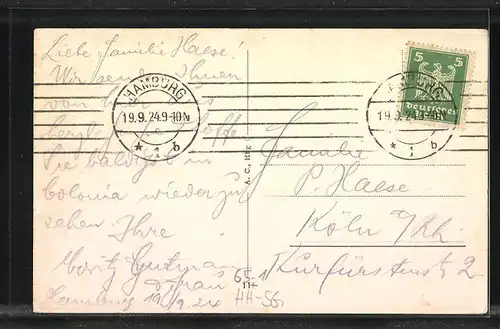 Liebe Familie Haese!
Wir senden Ihnen
von hier aus
herzl. Grüße
Sie baldigst in
Colonia wieder zu
sehen. Ihre
Moritz Gutman
u Frau
Hamburg 19/9.24
HAMBURG
19.9.24.9-10N
* 1 b
A. C., Hbg
5 5
Deutsches Reich
HAMBURG
19.9.24.9-10N
* 1 b
Familie
P. Haese
Köln a/Rh.
Kurfürstenstr 2
65-1
HH-SG